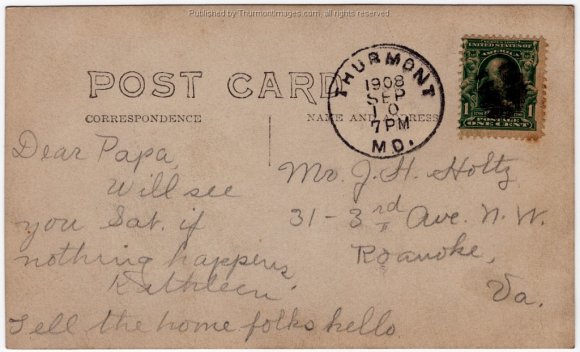 Published by Thurmontimages.com, all rights reserved
POST CARD
CORRESPONDENCE
NAME AND ADDRESS
THURMONT
1908
SEP
10
7 PM
MD.
UNITED STATES OF
AMERICA
1 POSTAGE 1
ONE CENT
Dear Papa,
Will see
you Sat. if
nothing happens,
Kathleen.
Tell the home folks hello
Mr. J. H. Holtz
31-3rd Ave. N. W.
Roanoke,
Va.